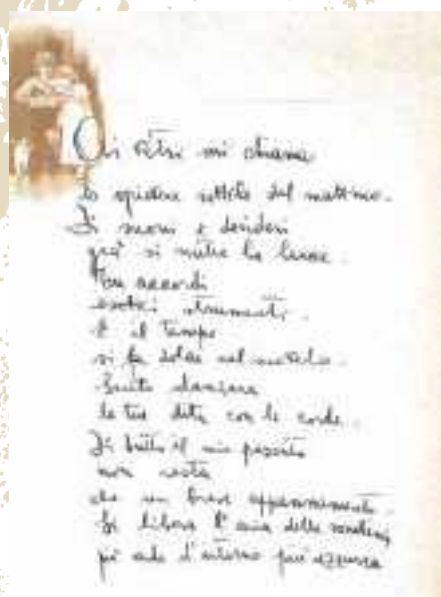 Ai vetri mi chiama
lo spiedere sottile del mattino.
Di suoni e desideri
già si nutre la luce.
Tu accordi
esotici strumenti.
E il tempo
si fa dolce nel
Sento danzare
le tue dita con le corde.
Di tutto il mio passato
non resta
che un breve appannamento.
Si libera l'aria delle
più azzurra